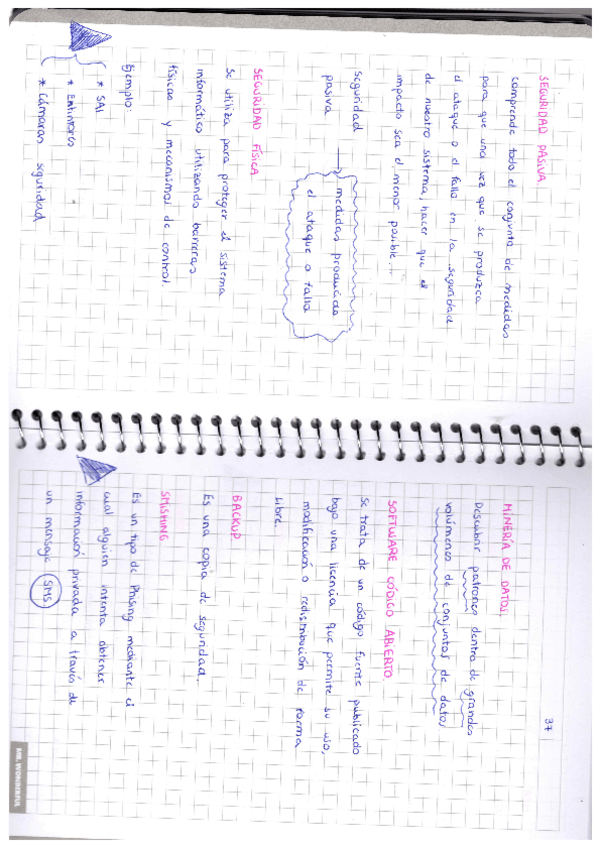 SEGURIDAD PASIVA
comprende todo el conjunto de medidas
para que una vez que se produzca
el ataque o el fallo en la seguridad
de nuestro sistema, hacer que el
impacto sea el menor posible...
seguridad
pasiva
medidas producido
el ataque o fallo
SEGURIDAD FÍSICA
se utiliza para proteger el sistema
informático utilizando barreras
físicas y mecanismos de control.
Ejemplo:
* SAI
* Extintores
* Cámaras seguridad
37
MINERÍA DE DATOS.
Descubrir patrones dentro de grandes
volúmenes de conjuntos de datos
SOFTWARE CÓDIGO ABIERTO.
Se trata de un código fuente publicado
bajo una licencia que permite su uso,
modificación o redistribución de forma
libre.
BACKUP
Es una copia de seguridad.
SMISHING
Es un tipo de Phising mediante el
cual alguien intenta obtener
información privada a través de
un mensaje SMS
MR. WONDERFUL